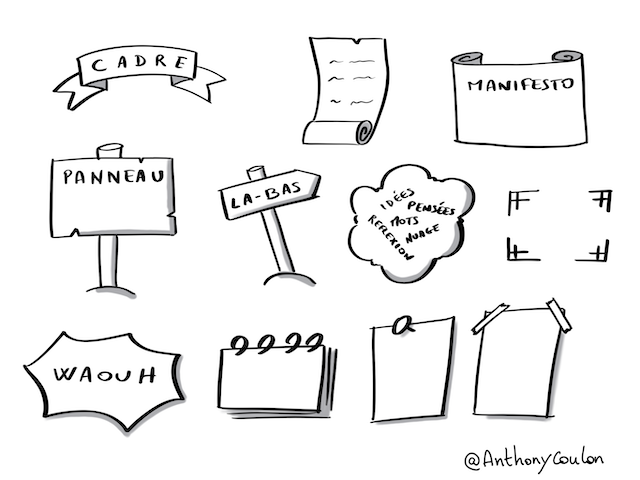 CADRE
MANIFESTO
PANNEAU
LA-BAS
IDÉES
PENSÉES
MOTS
NUAGE
REFLEXION
WAOUH
@AnthonyCoulon